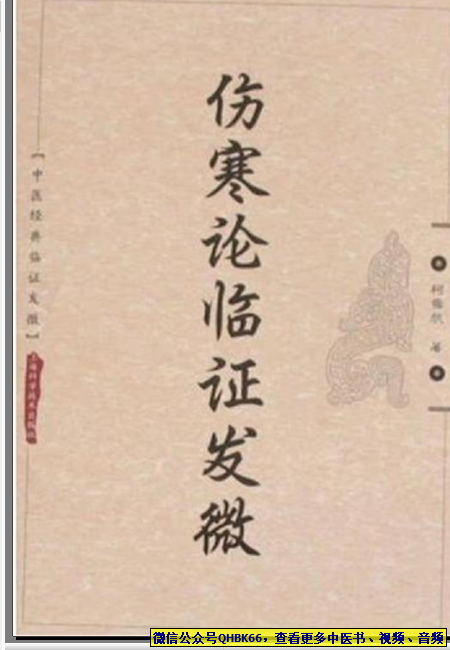 伤寒论临证发微
【中医经典临证发微】
上海科学技术出版社
著
微信公众号QHBK66，查看更多中医书、视频、音频